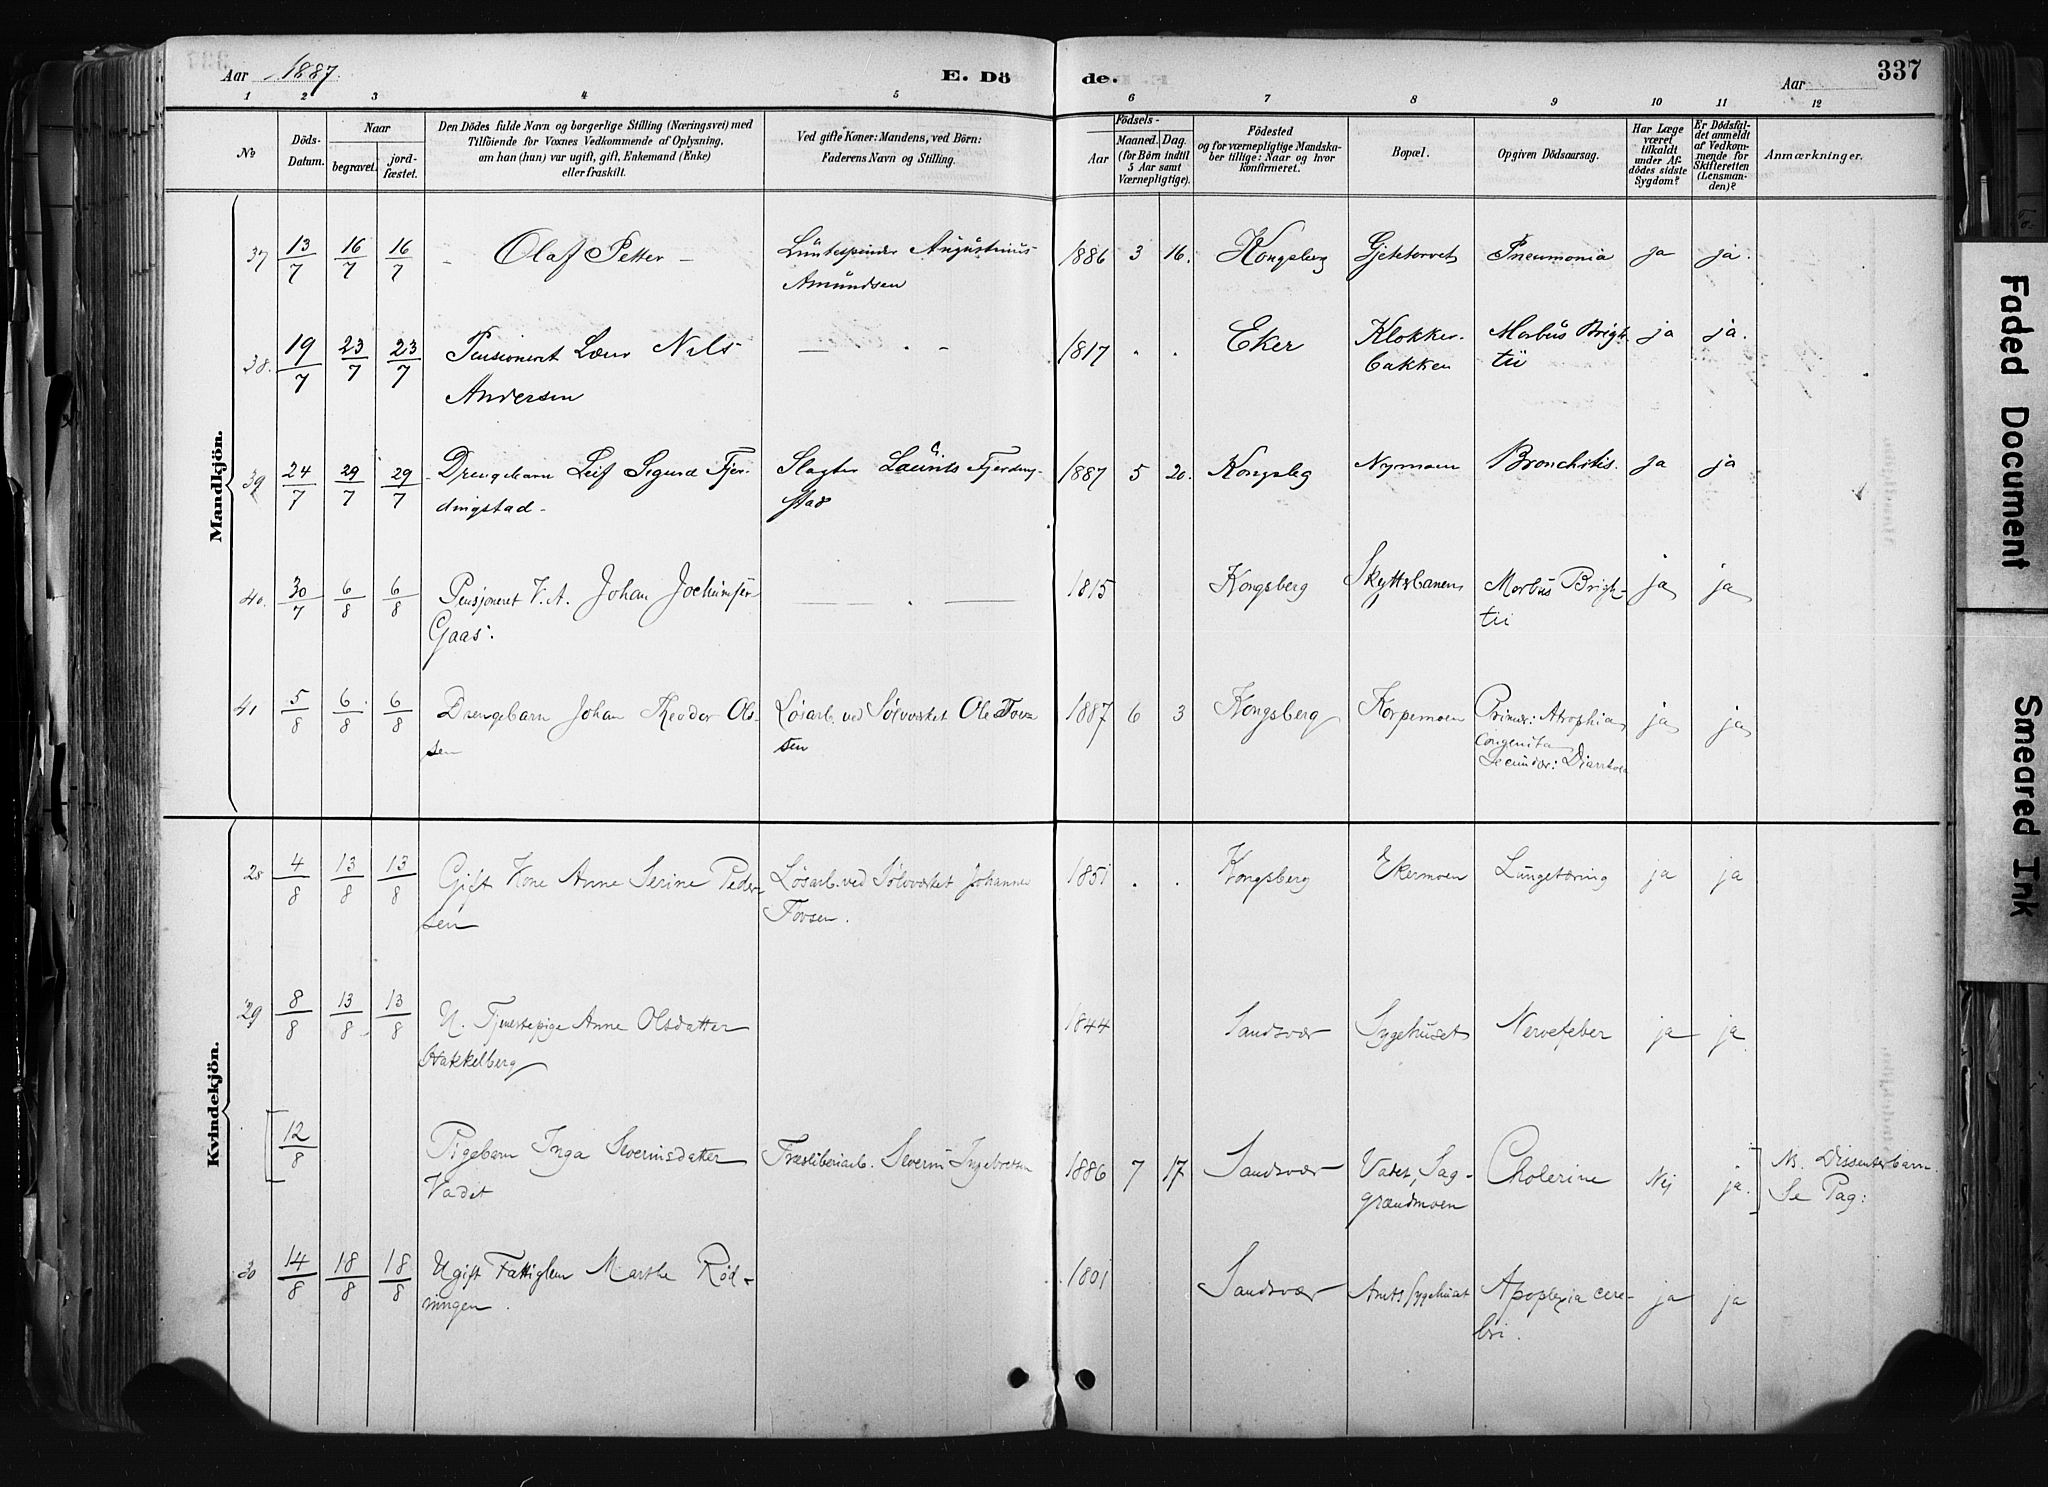 Aar 1887. E. Dö de. Aar 337
1 2 3 4 5 6 7 8 9 10 11 12
No
Döds-
Datum.
Naar
begravet.
jord-
fæstet.
Den Dödes fulde Navn og borgerlige Stilling (Næringsvei) med
Tilföiende for Voxnes Vedkommende af Oplysning,
om han (hun) var ugift, gift, Enkemand (Enke)
eller fraskilt.
Ved gifte Koner: Mandens, ved Börn:
Faderens Navn og Stilling.
Födsels-
Aar
Maaned. Dag.
(for Börn indtil
5 Aar samt
Værnepligtige).
Födested
og for værnepligtige Mandska-
ber tillige: Naar og hvor
konfirmeret.
Bopæl.
Opgiven Dödsaarsag.
Har Læge
været
tilkaldt
under Af-
dödes sidste
Sygdom?
Er Dödsfal-
det anmeldt
af Vedkom-
mende for
Skifteretten
(Lensman-
den)?
Anmærkninger.
Mandkjön.
37 13/7 16/7 16/7 - Olaf Petter - Luntespinder Augustinius 1886 3 16. Kongsberg Gjetetorvet Pneumonia ja ja.
Amundsen
38. 19/7 23/7 23/7 Pensioneret Læur Nils 1817 Eker Klokker- Morbus Brigh- ja ja.
Andersen bakken tii
39 24/7 29/7 29/7 Drengebarn Leif Sigurd Fjer- Slagter Laurits Fjerding- 1887 5 20. Kongsbg Nymoen Bronchitis. ja ja
dingstad - stad
40. 30/7 6/8 6/8 Pensjoneret V. A. Johan Jochimsen 1815 Kongsberg Skytterbanen Morbus Brigh- ja ja
Gaas. tii
41 5/8 6/8 6/8 Drengebarn Johan Theodor Ol- Løsarb. ved Sølvværket Ole Tov- 1887 6 3 Kongsberg Korpemoen Primær: Atrophia ja ja
sen sen congenita
Secundær: Diarrhoea
Kvindekjön.
28 4/8 13/8 13/8 Gift Kone Anne Serine Peder- Løsarb. ved Sølvværket Johannes 1851 Kongsberg Ekermoen Lungetæring ja ja
sen Tovsen.
29 8/8 13/8 13/8 U. Tjenestepige Anne Olsdatter 1844 Sandsvær Sygehuset Nervefeber ja ja
Hakkelberg
12/8 Pigebarn Inga Severinsdatter Træsliberiarb. Severin Ingebretsen 1886 7 17 Sandsvær Vadet, Sag- Cholerine Nej ja. N. Dissenterbarn.
Vadet grændmoen Se Pag:
30 14/8 18/8 18/8 Ugift Fattiglem Marthe Rød- 1801 Sandsvær Amtssygehuset Apoplexia cere- ja ja
ningen. bri.
Faded Document
Smeared Ink